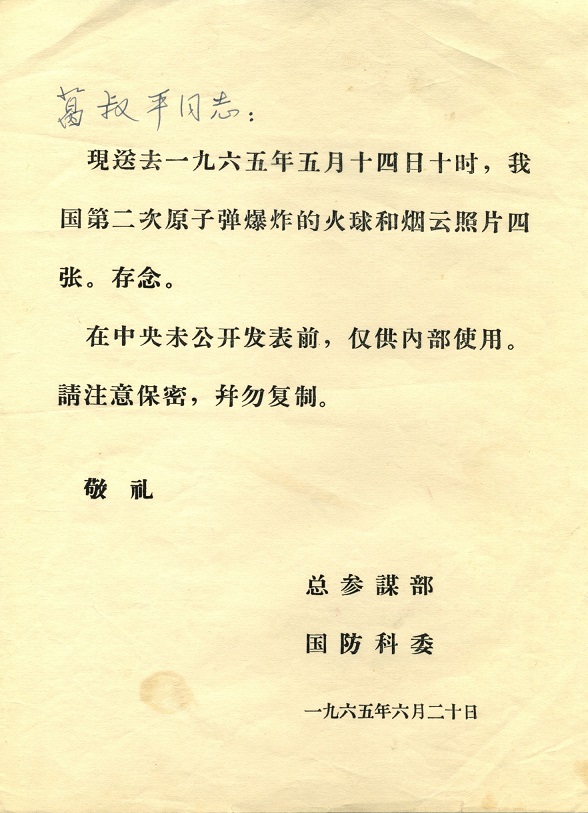 葛叔平同志：
現送去一九六五年五月十四日十时，我
国第二次原子弹爆炸的火球和烟云照片四
张。存念。
在中央未公开发表前，仅供內部使用。
請注意保密，幷勿复制。
敬礼
总参謀部
国防科委
一九六五年六月二十日